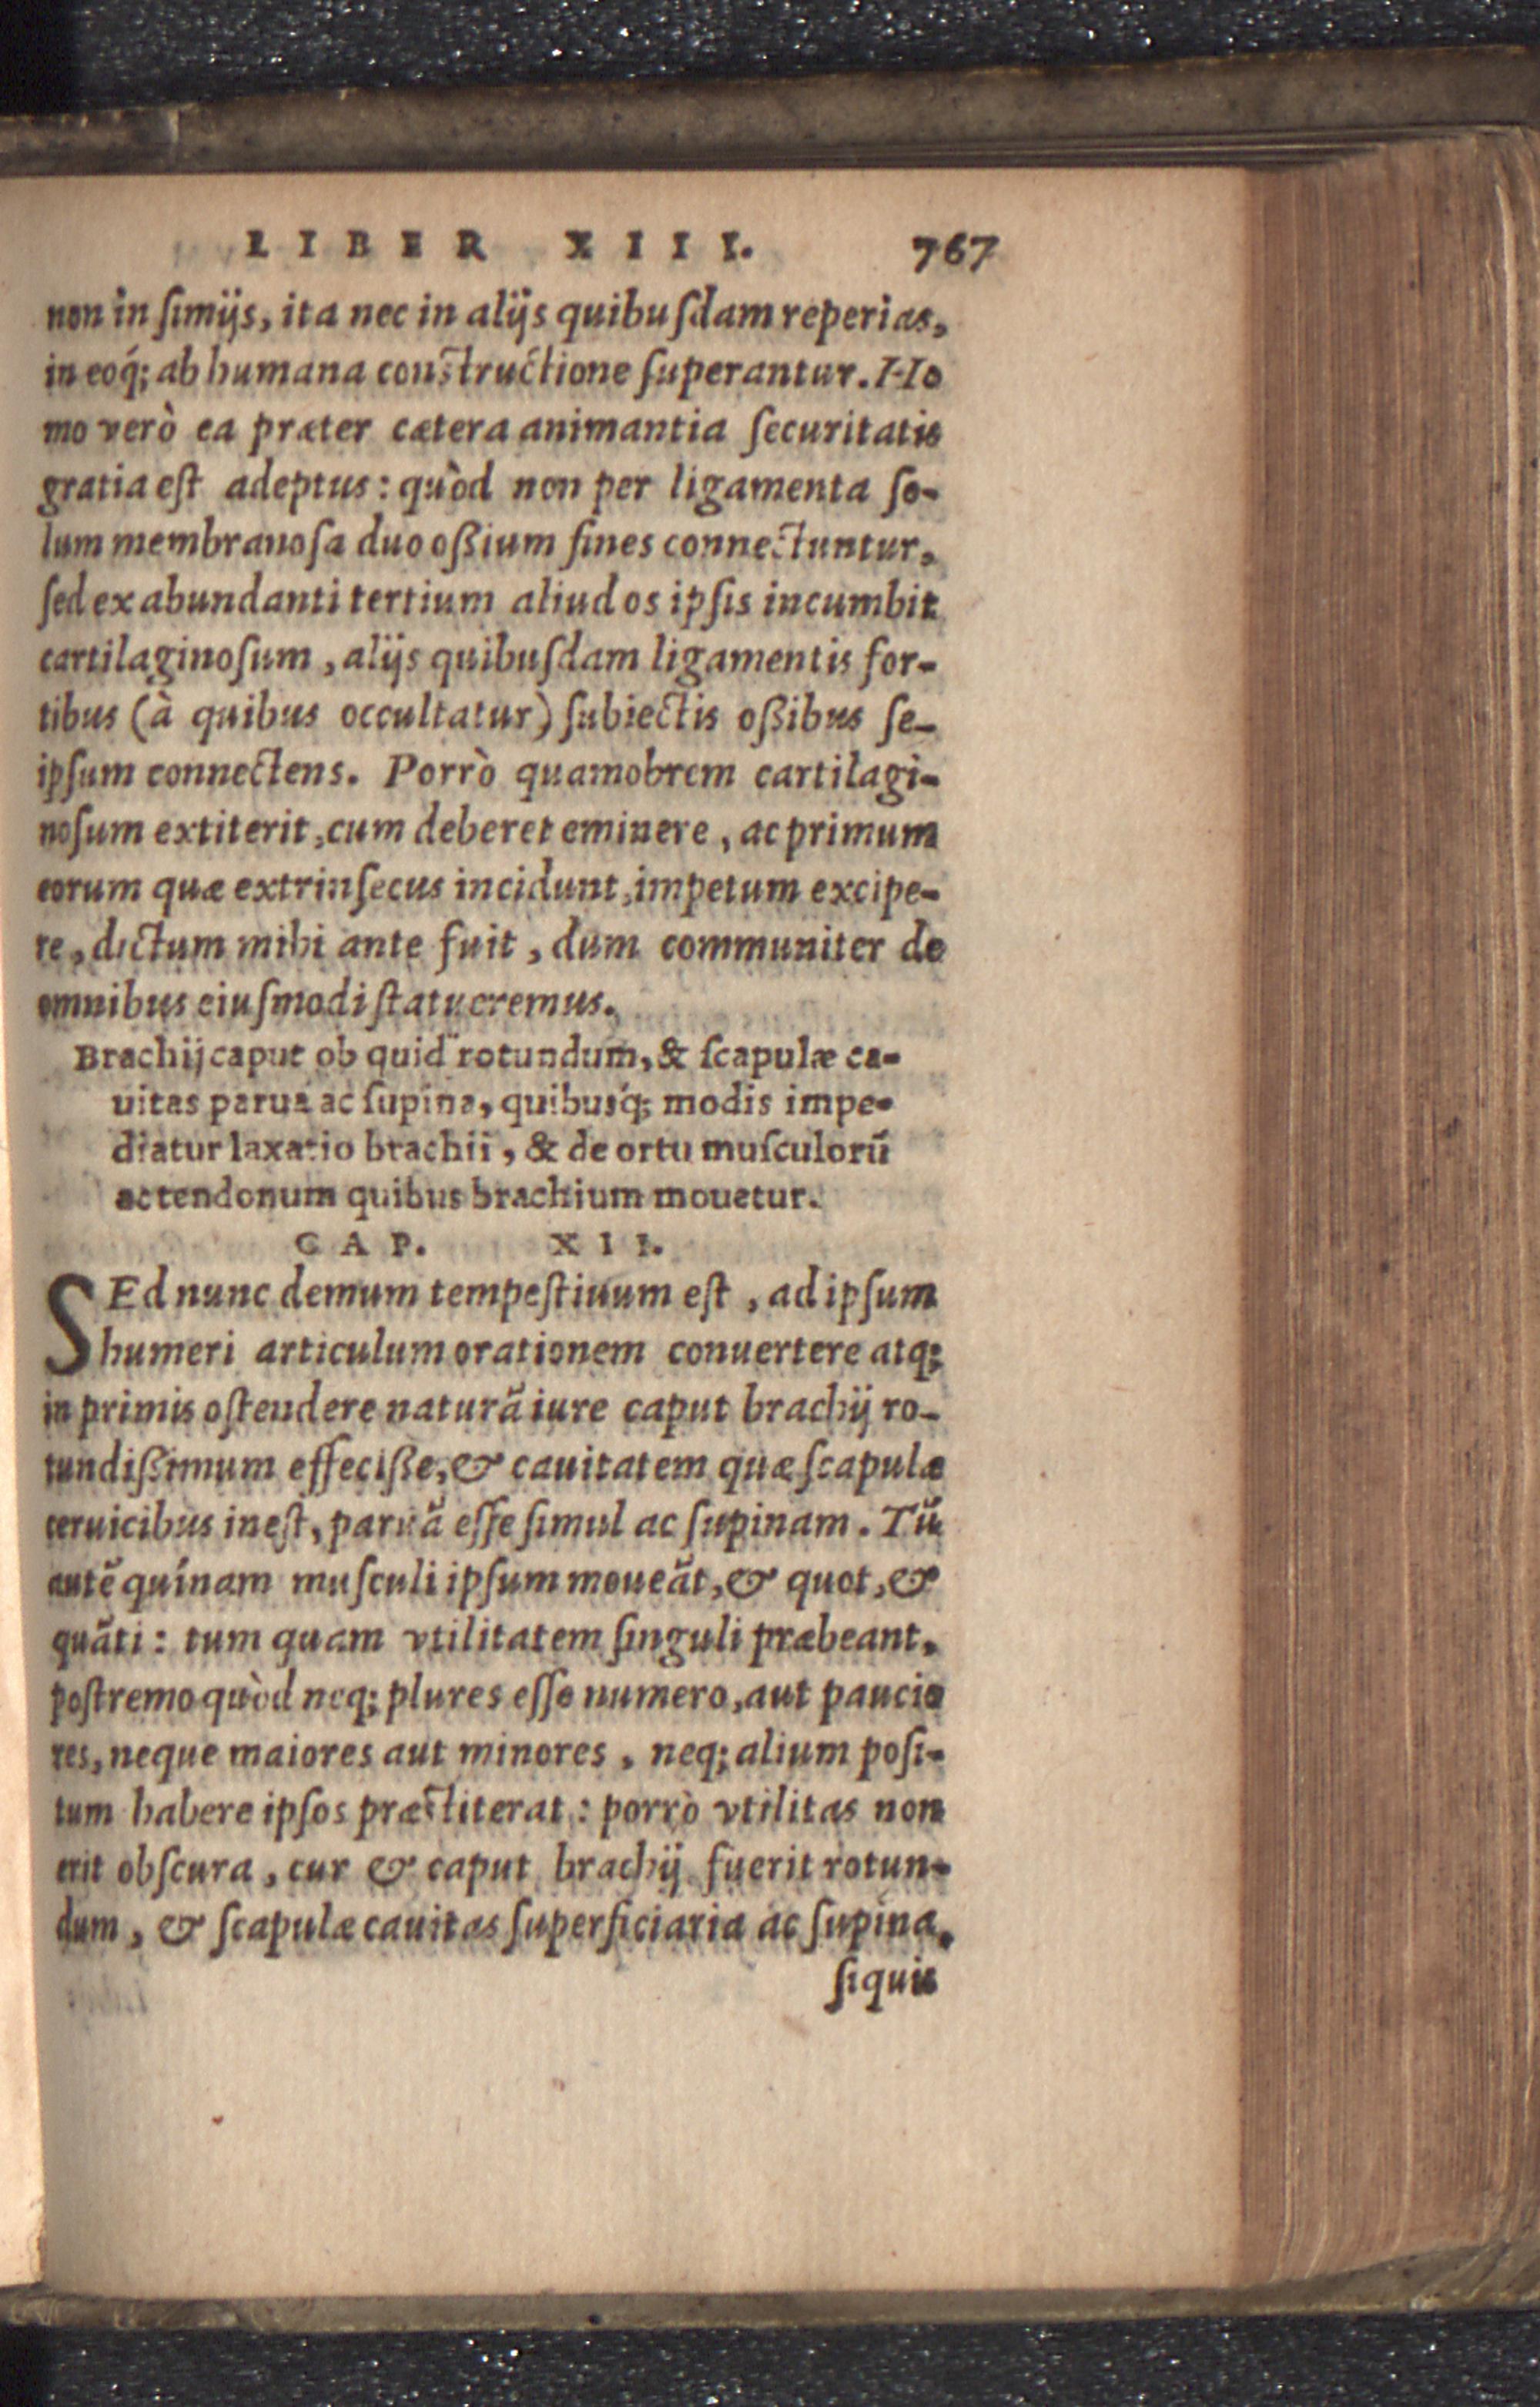 LIBER XIII. 767
non in simijs, ita nec in alijs quibusdam reperias,
in eoq́; ab humana constructione superantur. Ho
mo verò ea præter cætera animantia securitatis
gratia est adeptus: quòd non per ligamenta so-
lum membranosa duo oßium fines connectuntur,
sed ex abundanti tertium aliud os ipsis incumbit
cartilaginosum, alijs quibusdam ligamentis for-
tibus (à quibus occultatur) subiectis oßibus se-
ipsum connectens. Porrò quamobrem cartilagi-
nosum extiterit, cum deberet eminere, ac primum
eorum quæ extrinsecus incidunt, impetum excipe-
re, dictum mihi ante fuit, dum communiter de
omnibus eiusmodi statueremus.
Brachij caput ob quid rotundum, & scapulæ ca-
uitas parua ac supina, quibusq́; modis impe-
diatur laxatio brachii, & de ortu musculorũ
ac tendonum quibus brachium mouetur.
CAP. XII.
SEd nunc demum tempestiuum est, ad ipsum
humeri articulum orationem conuertere atq;
in primis ostendere naturã iure caput brachij ro-
tundißimum effeciße, & cauitatem quæ scapulæ
ceruicibus inest, paruã esse simul ac supinam. Tũ
autẽ quínam musculi ipsum moueãt, & quot, &
quãti: tum quam vtilitatem singuli præbeant,
postremo quòd neq; plures esse numero, aut paucio
res, neque maiores aut minores, neq; alium posi-
tum habere ipsos præstiterat: porrò vtilitas non
erit obscura, cur & caput brachij fuerit rotun-
dum, & scapulæ cauitas superficiaria ac supina,
siquis